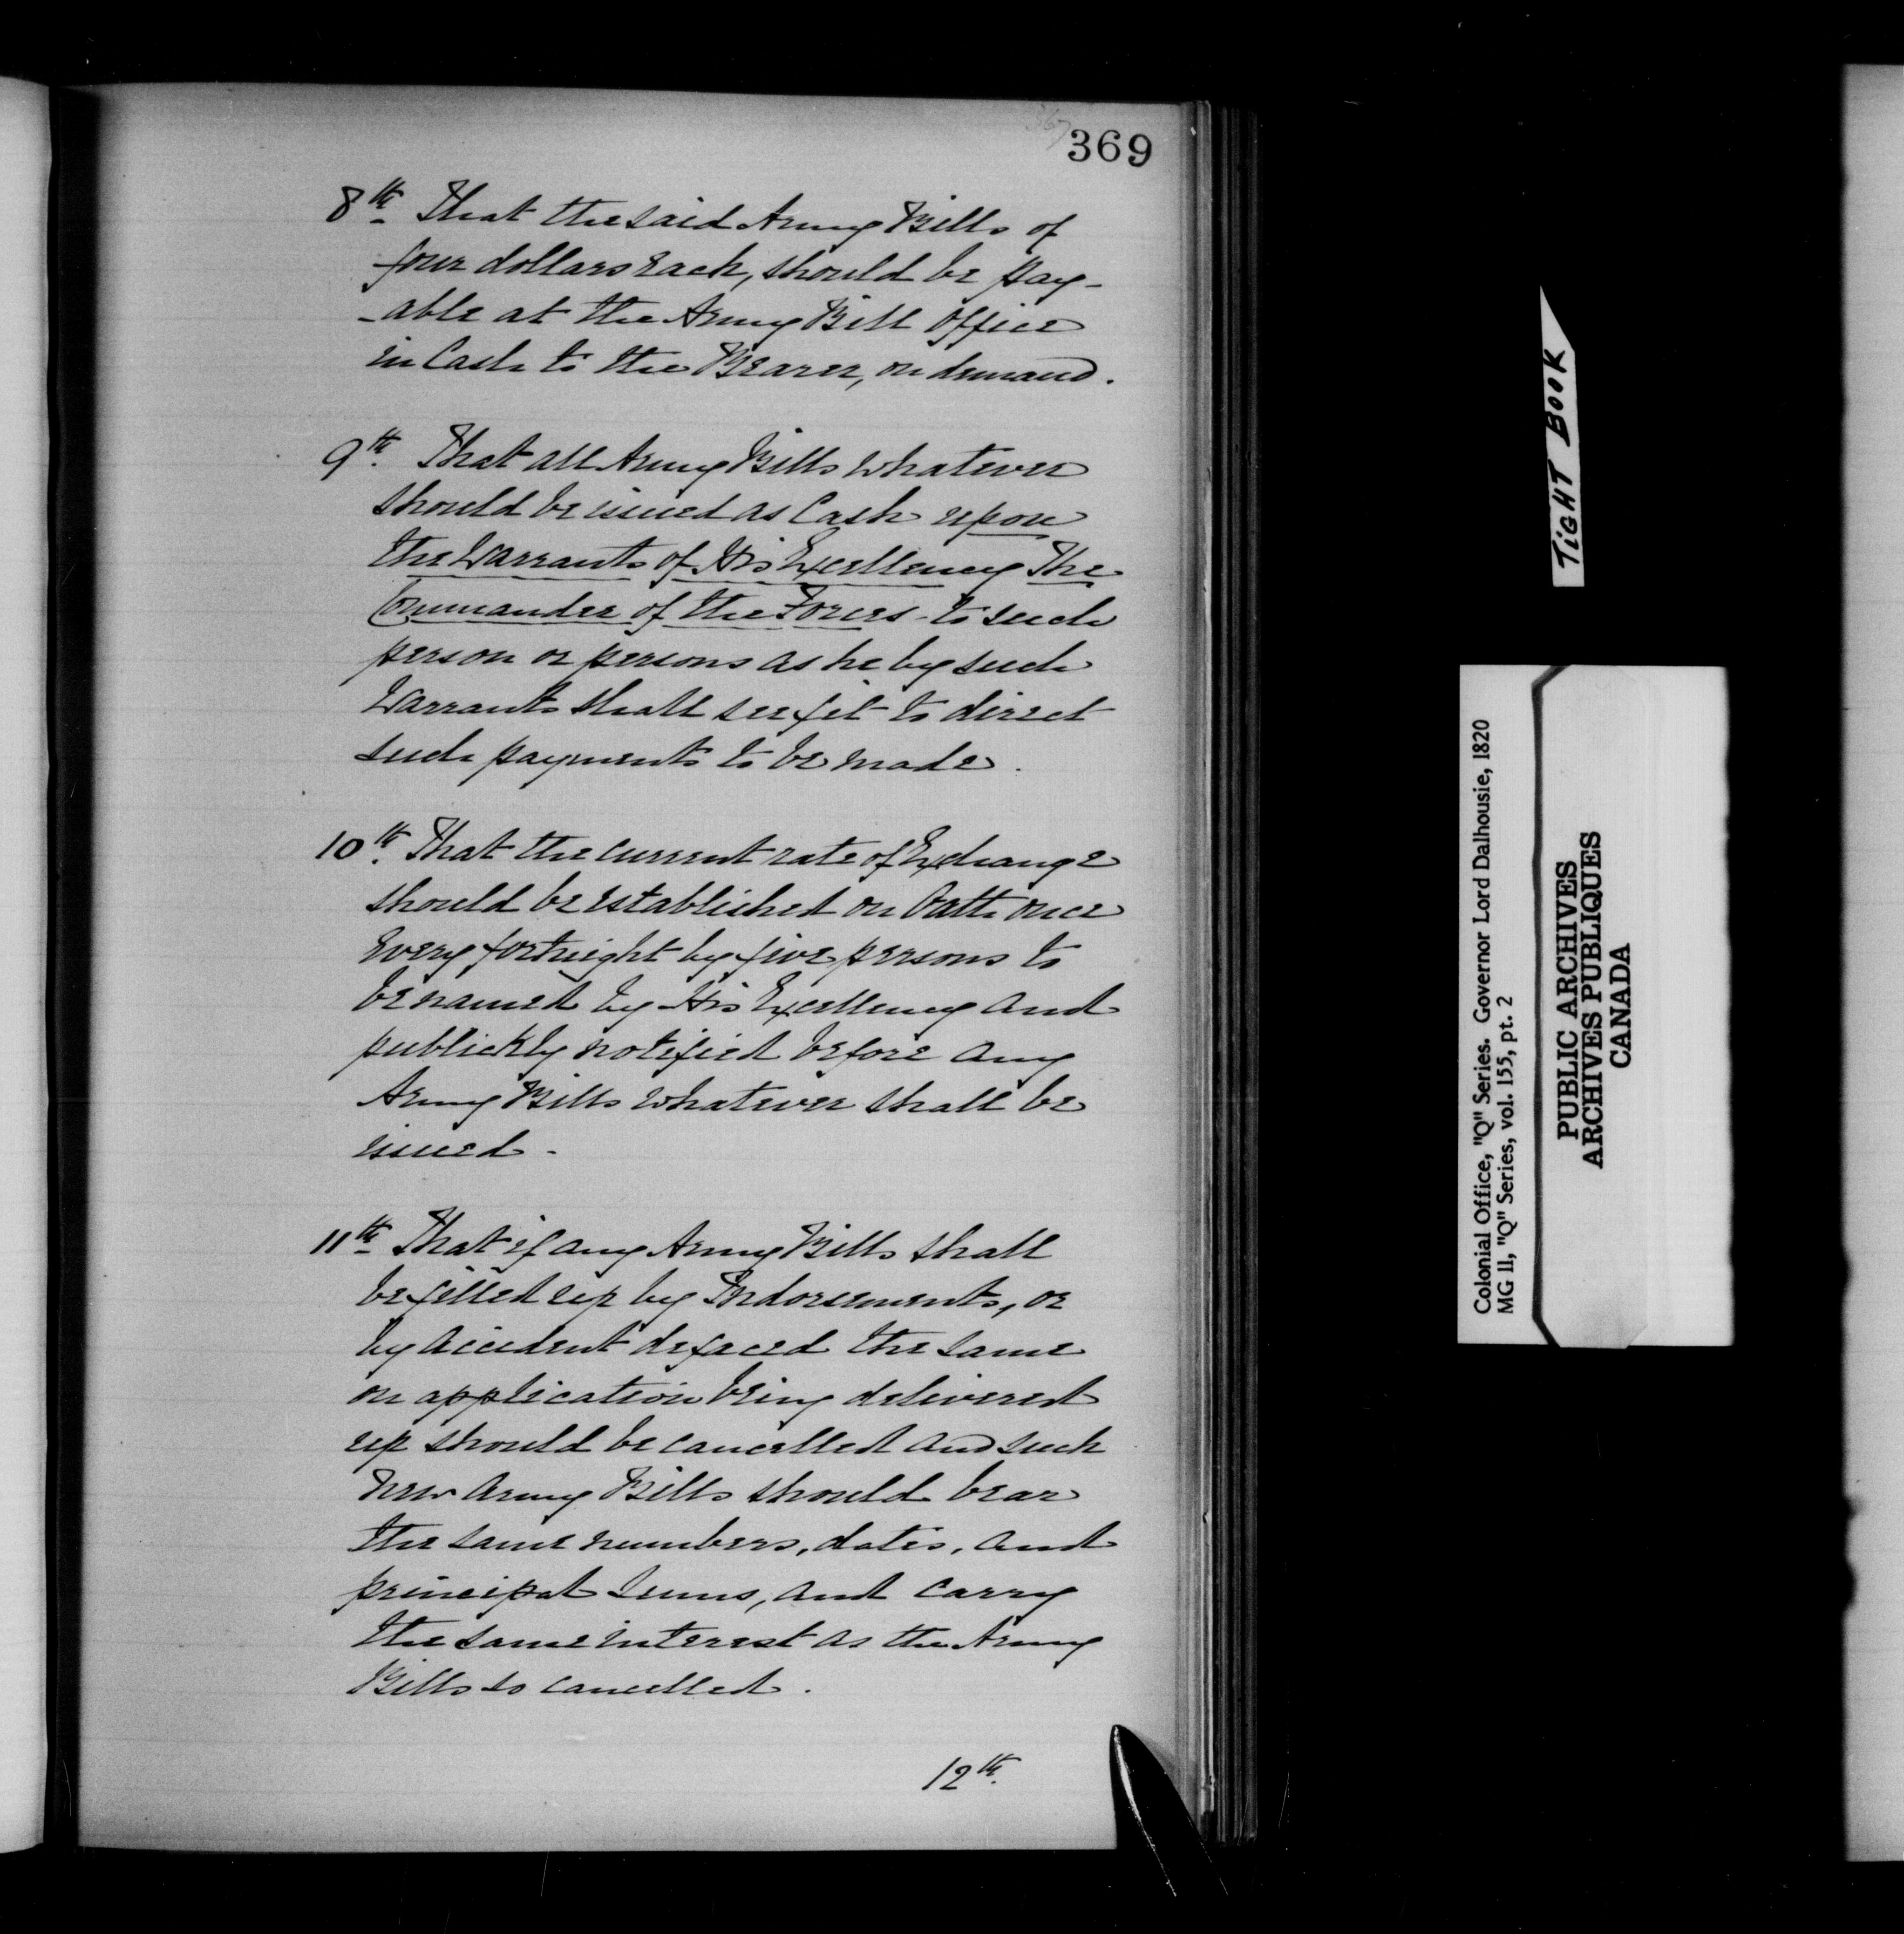 367
369
8th. That the said Army Bills of
four dollars each, should be pay-
-able at the Army Bill Office
in Cash to the Bearer, on demand.
9th. That all Army Bills whatever
should be issued as Cash upon
the Warrants of His Excellency The
Commander of the Forces - to such
person or persons as he by such
Warrants shall see fit to direct
such payments to be made.
10th. That the current rate of Exchange
should be established on Oath once
Every fortnight by five persons to
be named by His Excellency and
publickly notified before any
Army Bills whatever shall be
issued -
11th. That if any Army Bills shall
be filled up by Indorsements, or
by accident defaced the same
on application being delivered
up should be cancelled and such
new Army Bills should bear
the same numbers, dates, and
principal sums, and carry
the same interest as the Army
Bills so cancelled.
12th.
TIGHT BOOK
Colonial Office, "Q" Series. Governor Lord Dalhousie, 1820
MG 11, "Q" Series, vol. 155, pt. 2
PUBLIC ARCHIVES
ARCHIVES PUBLIQUES
CANADA